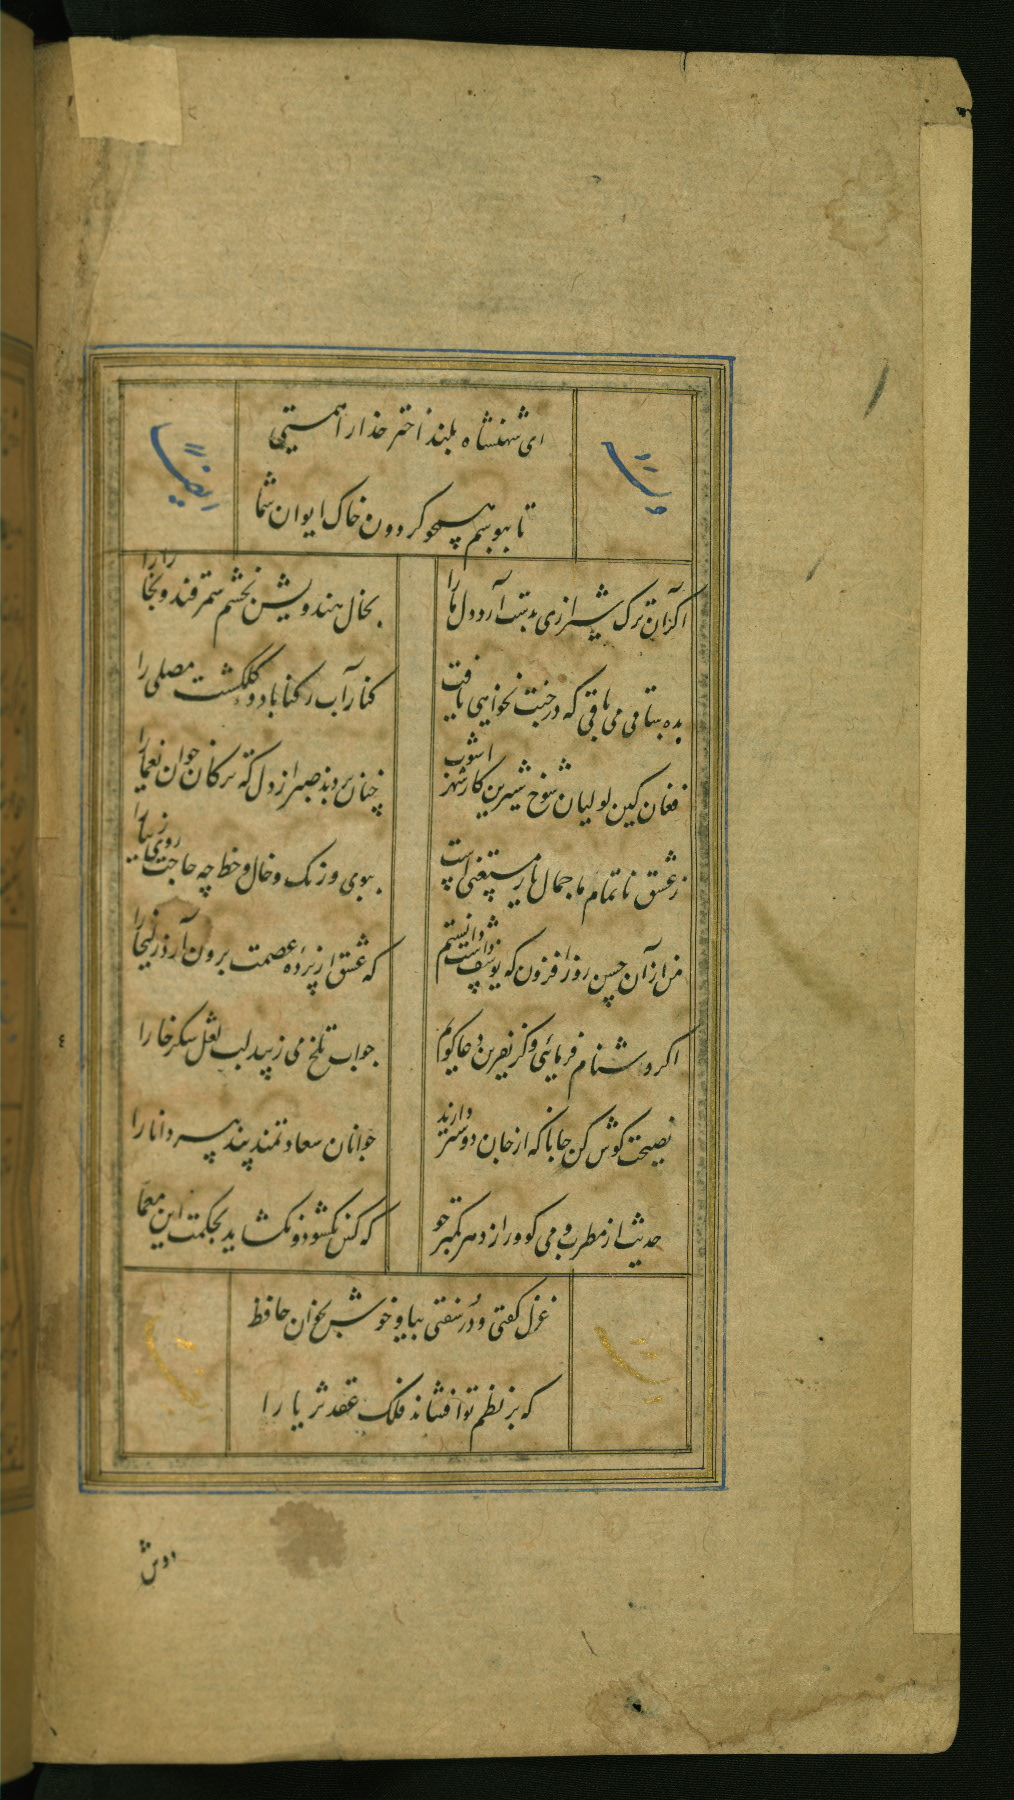 ای شهنشاه بلند اختر خدا را همتی
تا ببوسم همچو کردون خاک ایوان شما
وله
ایضا
اکر آن ترک شیرازی بدست آرد دل ما را
بخال هندویش بخشم سمرقند و بخارا را
بده ساقی می باقی که در جنت نخواهی یافت
کنار آب رکناباد و کلکشت مصلی را
فغان کین لولیان شوخ شیرین کار شهر اشوب
چنان بردند صبر از دل که ترکان خوان یغما را
ز عشق ناتمام ما جمال یار مستغنی است
ببوی و رنک و خال و خط چه حاجت روی زیبا را
من از آن حسن روز افزون که یوسف داشت دانستم
که عشق از پرده عصمت برون آرد زلیخا را
اکر دشنام فرمائی و کر نفرین دعا کویم
جواب تلخ می زیبد لب لعل شکر خا را
نصیحت کوش کن جانا که از جان دوستر دارند
جوانان سعادتمند پند پیر دانا را
حدیث از مطرب و می کو و راز دهر کمتر جو
که کس نکشود و نکشاید بحکمت این معما را
غزل کفتی و در سفتی بیا و خوش بخوان حافظ
که بر نظم تو افشاند فلک عقد ثریا را
دوش